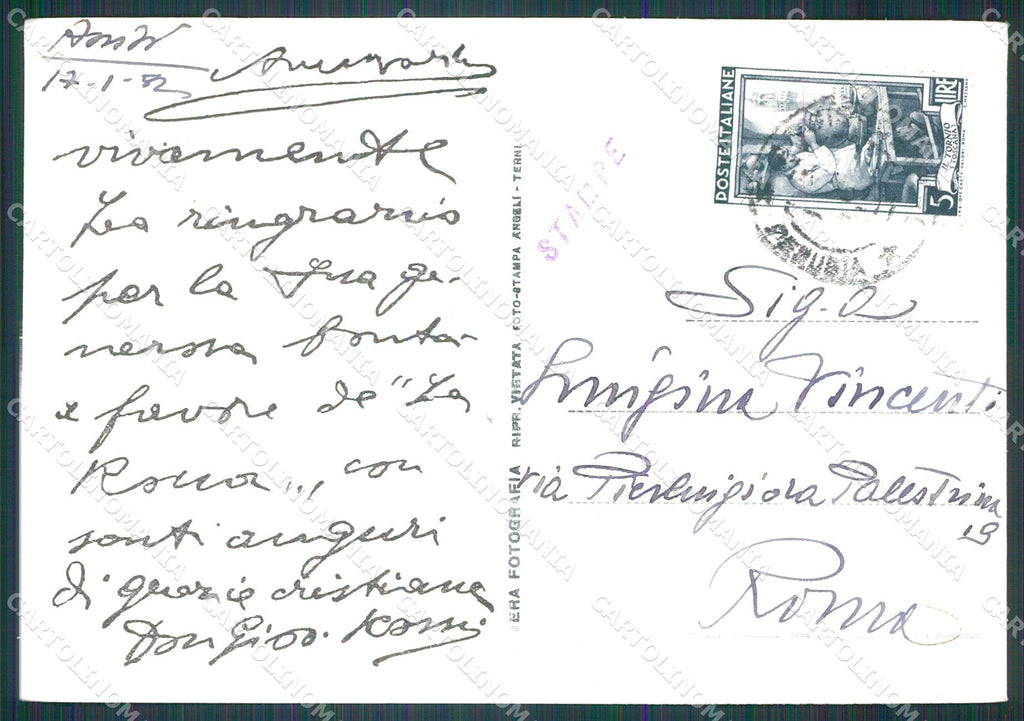 17-1-52
vivamente
La ringrazio
per la Sua ge-
nerosa bontà
a favore de "La
Rocca", con
santi auguri
di gioia cristiana
Don Giov. Rossi
ERA FOTOGRAFIA RIPR. VIETATA FOTO-STAMPA ANGELI - TERNI
STAMPE
POSTE ITALIANE
LIRE
5
IL TORNIO
(TOSCANA)
PERUGIA
Sig.a
Luigina Vincenti
via Pierluigi da Palestrina
19
Roma
CARTOLINOMANIA